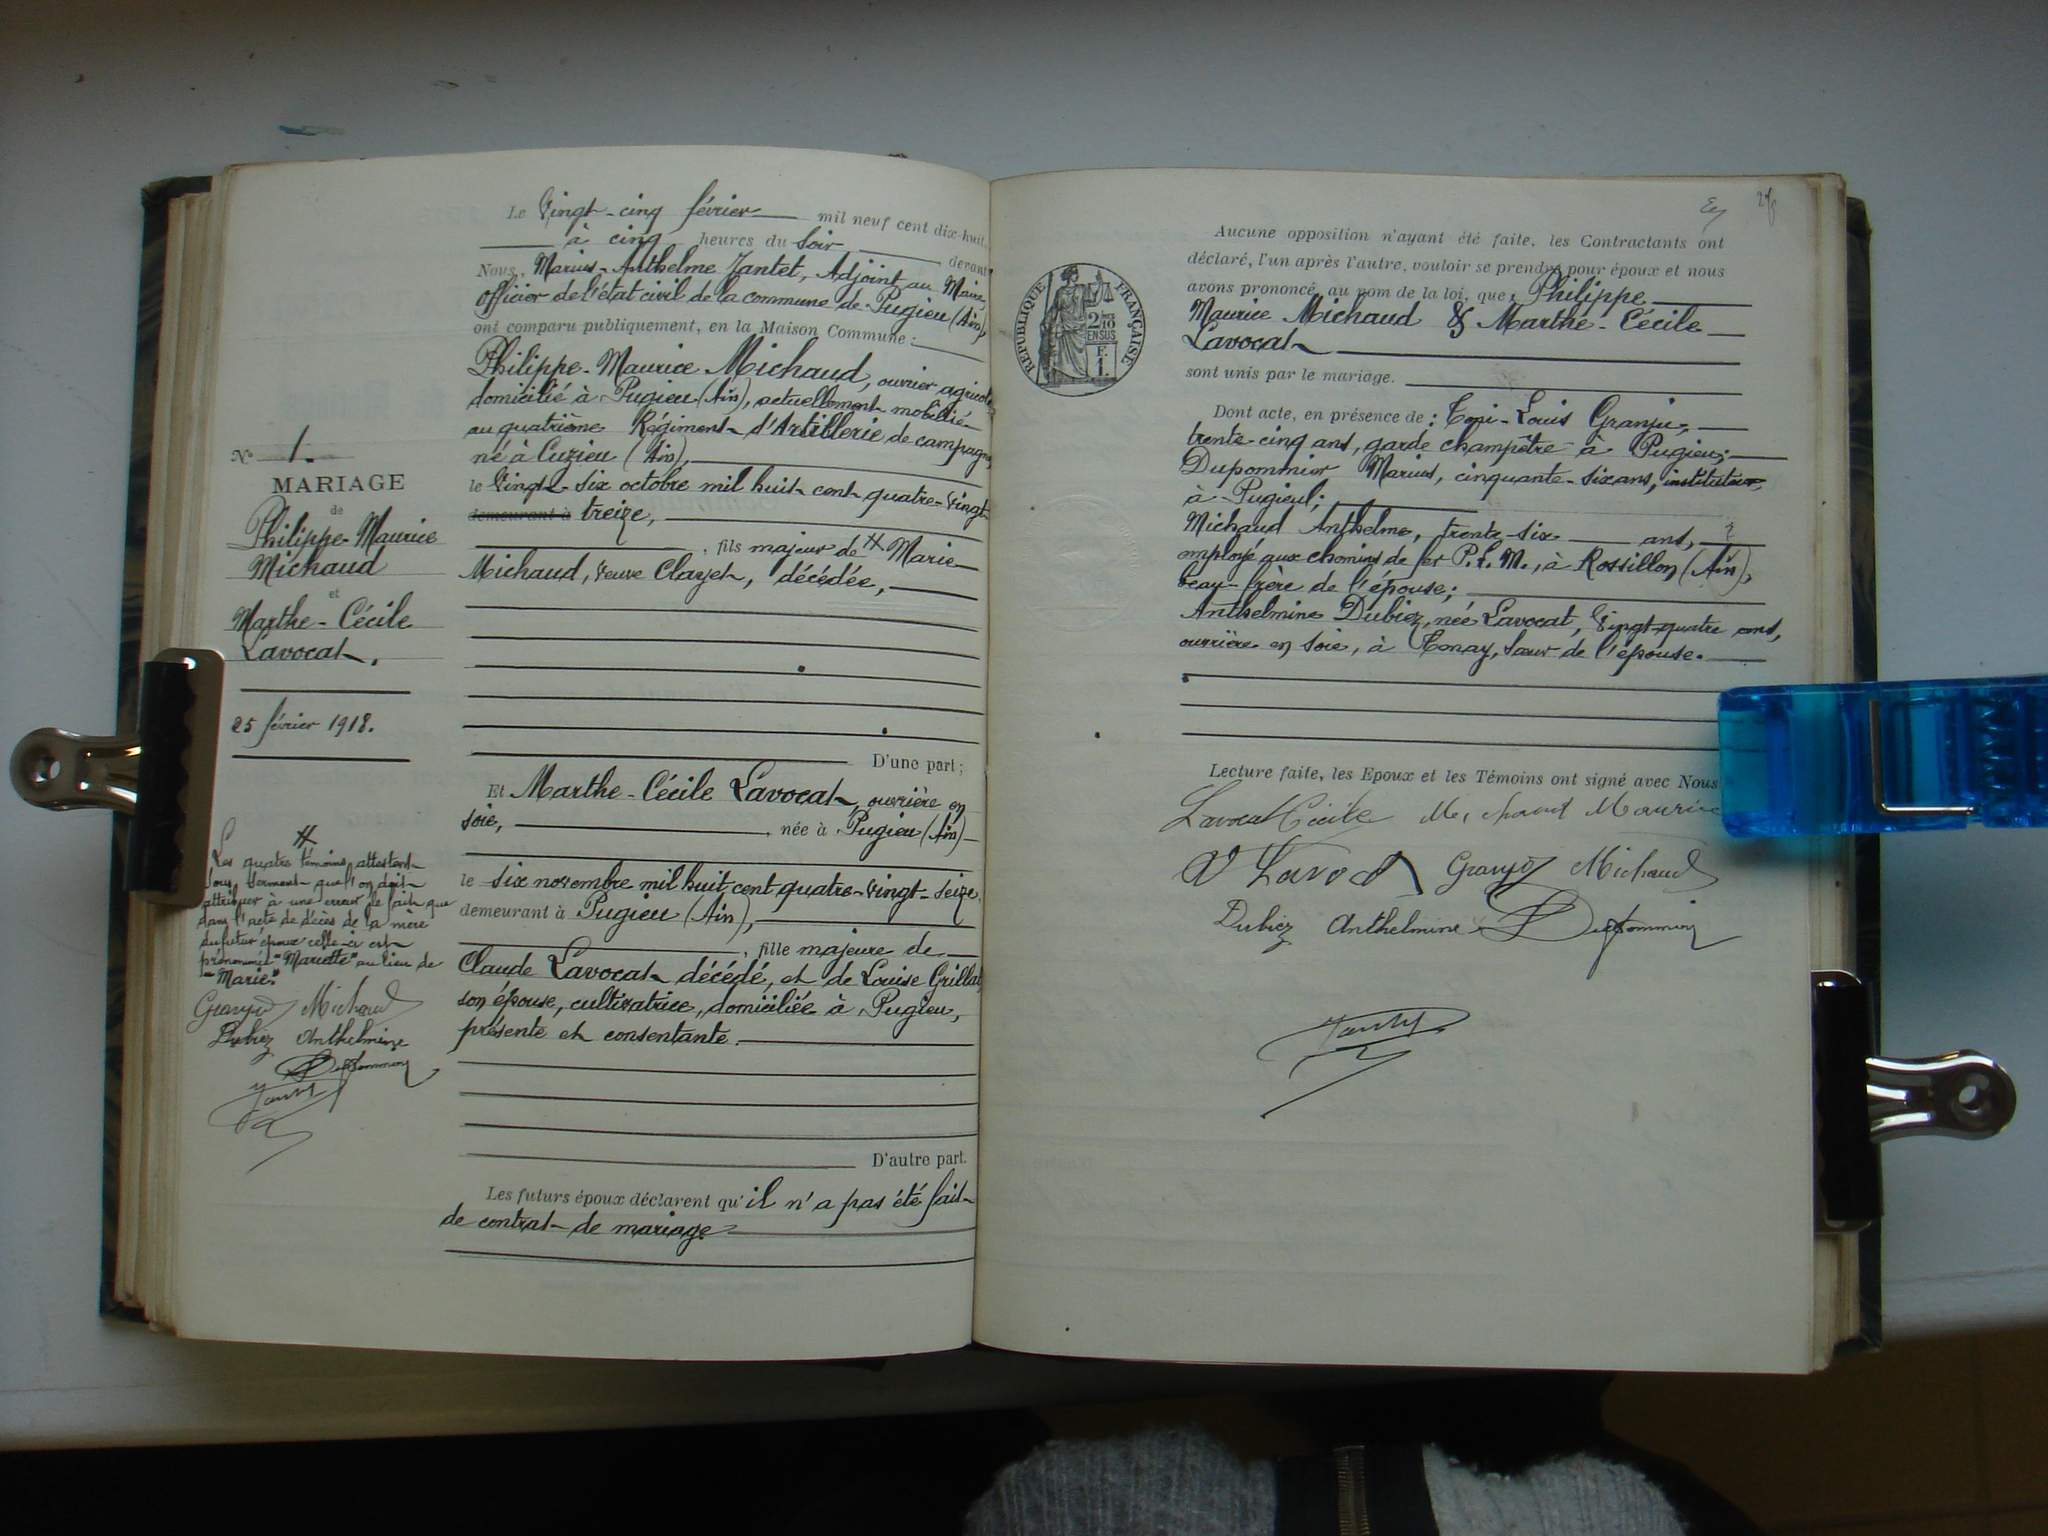 Le Vingt-cinq février mil neuf cent dix-huit,
à cinq heures du soir devant
Nous, Marius-Anthelme Jantet, Adjoint au Maire,
officier de l'état civil de la commune de Pugieu (Ain),
ont comparu publiquement, en la Maison Commune :
Philippe-Maurice Michaud, ouvrier agricole
domicilié à Pugieu (Ain), actuellement mobilisé
au quatrième Régiment d'Artillerie de campagne
né à Cuzieu (Ain),
le Vingt-six octobre mil huit cent quatre-vingt-
demeurant à treize,
, fils majeur de # Marie
Michaud, veuve Clarjet, décédée,
D'une part ;
Et Marthe-Cécile Lavocat, ouvrière en
soie, , née à Pugieu (Ain)
le six novembre mil huit cent quatre-vingt-seize,
demeurant à Pugieu (Ain),
, fille majeure de
Claude Lavocat décédé, et de Louise Grillat
son épouse, cultivatrice, domiciliée à Pugieu,
présente et consentante.
D'autre part.
Les futurs époux déclarent qu'il n'a pas été fait
de contrat de mariage
N° 1.
MARIAGE
de
Philippe-Maurice
Michaud
et
Marthe-Cécile
Lavocat.
25 février 1918.
#
Les quatre témoins attestent
sous serment que l'on doit
attribuer à une erreur le fait que
dans l'acte de décès de la mère
du futur époux celle-ci est
prénommée "Mariette" au lieu de
"Marie."
Granju Michaud
Dubiez Anthelmine
Dupommier
Jantet
REPUBLIQUE FRANÇAISE
2/10
EN SUS
F.
1.
Aucune opposition n'ayant été faite, les Contractants ont
déclaré, l'un après l'autre, vouloir se prendre pour époux et nous
avons prononcé, au nom de la loi, que Philippe
Maurice Michaud & Marthe-Cécile
Lavocat
sont unis par le mariage.
Dont acte, en présence de : Louis Granju,
trente cinq ans, garde champêtre à Pugieu ;
Dupommier Marius, cinquante-six ans, instituteur,
à Pugieu ;
Michaud Anthelme, trente-six ans,
employé aux chemins de fer P.L.M., à Rossillon (Ain),
beau-frère de l'épouse ;
Anthelmine Dubiez, née Lavocat, Vingt-quatre ans,
ouvrière en soie, à Tenay, sœur de l'épouse.
Lecture faite, les Epoux et les Témoins ont signé avec Nous
Lavocat Cécile Michaud Maurice
Lavocat Granju Michaud
Dubiez Anthelmine Dupommier
Jantet